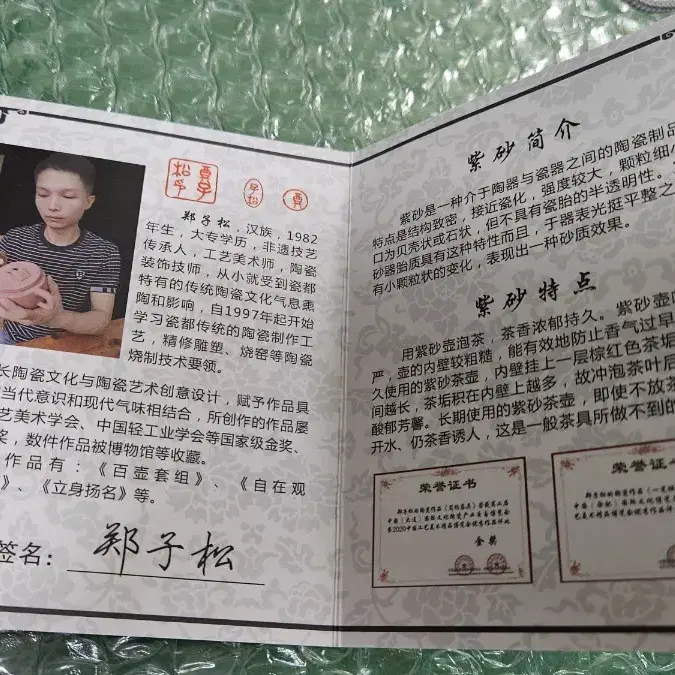 郑子松，汉族，1982
年生，大专学历，非遗技艺
传承人，工艺美术师，陶瓷
装饰技师，从小就受到瓷都
特有的传统陶瓷文化气息熏
陶和影响，自1997年起开始
学习瓷都传统的陶瓷制作工
艺，精修雕塑、烧窑等陶瓷
烧制技术要领。
长陶瓷文化与陶瓷艺术创意设计，赋予作品具
当代意识和现代气味相结合，所创作的作品屡
艺美术学会、中国轻工业学会等国家级金奖、
奖，数件作品被博物馆等收藏。
作品有：《百壶套组》、《自在观
》、《立身扬名》等。
签名：郑子松
紫砂简介
紫砂是一种介于陶器与瓷器之间的陶瓷制品
特点是结构致密，接近瓷化，强度较大，颗粒细小
口为贝壳状或石状，但不具有瓷胎的半透明性。
砂器胎质具有这种特性而且，于器表光挺平整之
有小颗粒状的变化，表现出一种砂质效果。
紫砂特点
用紫砂壶泡茶，茶香浓郁持久。紫砂壶
严，壶的内壁较粗糙，能有效地防止香气过早
久使用的紫砂茶壶，内壁挂上一层棕红色茶垢
间越长，茶垢积在内壁上越多，故冲泡茶叶后
酸郁芳馨。长期使用的紫砂茶壶，即使不放茶
开水、仍茶香诱人，这是一般茶具所做不到的
荣誉证书
金奖
荣誉证书